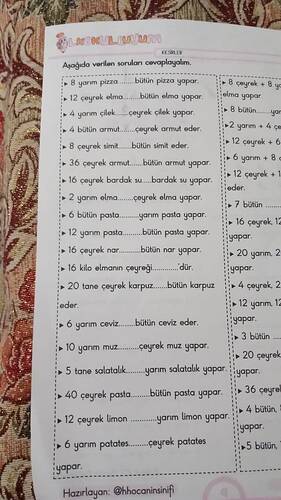 İLKOKULJUYUM
KESİRLER
Aşağıda verilen soruları cevaplayalım.
▸ 8 yarım pizza.......bütün pizza yapar.
▸ 12 çeyrek elma........bütün elma yapar.
▸ 4 yarım çilek.......çeyrek çilek yapar.
▸ 4 bütün armut......çeyrek armut eder.
▸ 8 çeyrek simit.......bütün simit eder.
▸ 36 çeyrek armut......bütün armut yapar.
▸ 16 çeyrek bardak su.....bardak su yapar.
▸ 2 yarım elma.......çeyrek elma yapar.
▸ 6 bütün pasta.........yarım pasta yapar.
▸ 12 yarım pasta..........bütün pasta yapar.
▸ 16 çeyrek nar..........bütün nar yapar.
▸ 16 kilo elmanın çeyreği............'dür.
▸ 20 tane çeyrek karpuz.......bütün karpuz
eder.
▸ 6 yarım ceviz........bütün ceviz eder.
▸ 10 yarım muz..........çeyrek muz yapar.
▸ 5 tane salatalık.........yarım salatalık yapar.
▸ 40 çeyrek pasta..........bütün pasta yapar.
▸ 12 çeyrek limon ............yarım limon yapar.
▸ 6 yarım patates.........çeyrek patates
yapar.
Hazırlayan: @hhocaninsinifi
▸ 8 çeyrek + 8
elma yapar
▸ 8 bütün......
▸ 2 yarım + 4
▸ 12 çeyrek + 6
▸ 6 yarım + 8
▸ 12 çeyrek + 1
eder.
▸ 7 bütün ......
▸ 16 çeyrek,
yapar.
▸ 20 yarım, 2
yapar.
▸ 4 çeyrek, 2
▸ 12 yarım,
yapar.
▸ 3 bütün .....
▸ 20 çeyrek
yapar.
▸ 36 çeyrek
▸ 4 bütün,
yapar.
▸ 5 bütün,